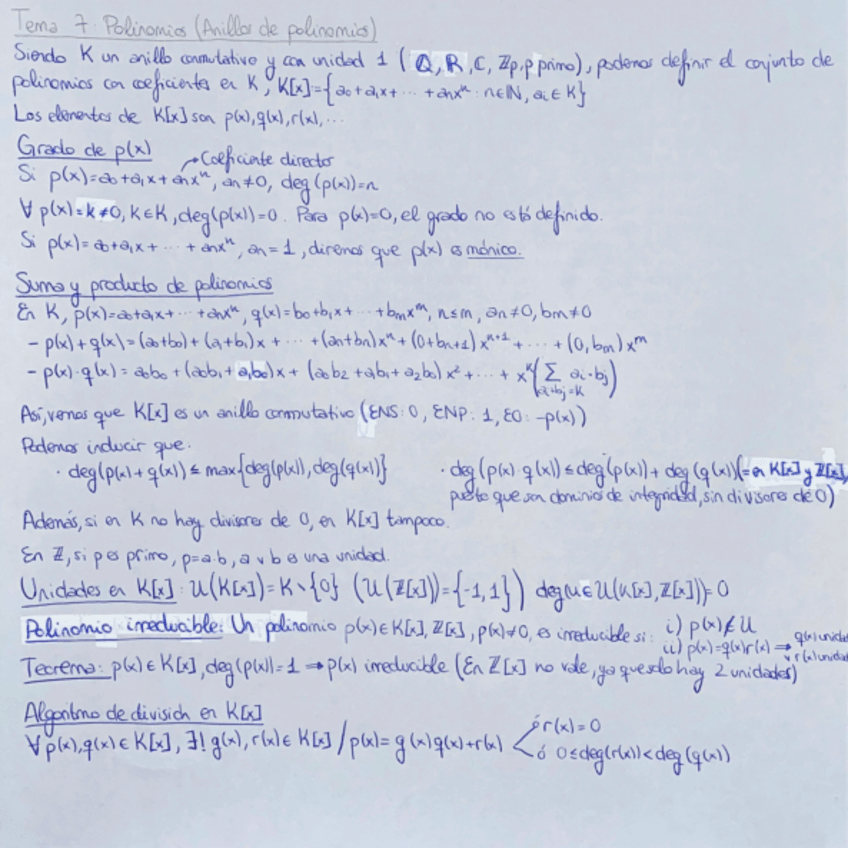 Tema 7. Polinomios (Anillos de polinomios)
Siendo K un anillo conmutativo y con unidad 1 (Q, R, C, Zp, p primo), podemos definir el conjunto de
polinomios con coeficientes en K, K[x]={a₀+a₁x+⋯+aₙxⁿ : n∈ℕ, aᵢ∈K}
Los elementos de K[x] son p(x), q(x), r(x),...
Grado de p(x)
→Coeficiente director
Si p(x)=a₀+a₁x+aₙxⁿ, aₙ≠0, deg(p(x))=n
∀ p(x)=k≠0, k∈K, deg(p(x))=0. Para p(x)=0, el grado no está definido.
Si p(x)=a₀+a₁x+⋯+aₙxⁿ, aₙ=1, diremos que p(x) es mónico.
Suma y producto de polinomios
En K, p(x)=a₀+a₁x+⋯+aₙxⁿ, q(x)=b₀+b₁x+⋯+bₘxᵐ, n≤m, aₙ≠0, bₘ≠0
- p(x)+q(x)=(a₀+b₀)+(a₁+b₁)x+⋯+(aₙ+bₙ)xⁿ+(0+bₙ+₁)xⁿ⁺¹+⋯+(0,bₘ)xᵐ
- p(x)·q(x)=a₀b₀+(a₀b₁+a₁b₀)x+(a₀b₂+a₁b₁+a₂b₀)x²+⋯+xᴷ(∑ aᵢ·bⱼ)
aᵢ+bⱼ=K
Así, vemos que K[x] es un anillo conmutativo (ENS: 0, ENP: 1, EO: -p(x))
Podemos inducir que:
· deg(p(x)+q(x))≤max{deg(p(x)), deg(q(x))}
· deg(p(x)·q(x))≤deg(p(x))+deg(q(x))(=en K[x] y Z[x],
puesto que son dominios de integridad, sin divisores de 0)
Además, si en K no hay divisores de 0, en K[x] tampoco.
En Z, si p es primo, p=a·b, a v b es una unidad.
Unidades en K[x]: U(K[x])=K∖{0} (U(Z[x])={-1,1}) deg(u∈U(K[x],Z[x]))=0
Polinomio irreducible: Un polinomio p(x)∈K[x], Z[x], p(x)≠0, es irreducible si: i) p(x)∉U
ii) p(x)=q(x)r(x) → q(x) unidad
v r(x) unidad
Teorema: p(x)∈K[x], deg(p(x))=1 ⇒ p(x) irreducible (En Z[x] no vale, ya que solo hay 2 unidades)
Algoritmo de división en K[x]
∀p(x),q(x)∈K[x], ∃! g(x), r(x)∈K[x] / p(x)=g(x)q(x)+r(x)
ó r(x)=0
ó 0≤deg(r(x))<deg(q(x))